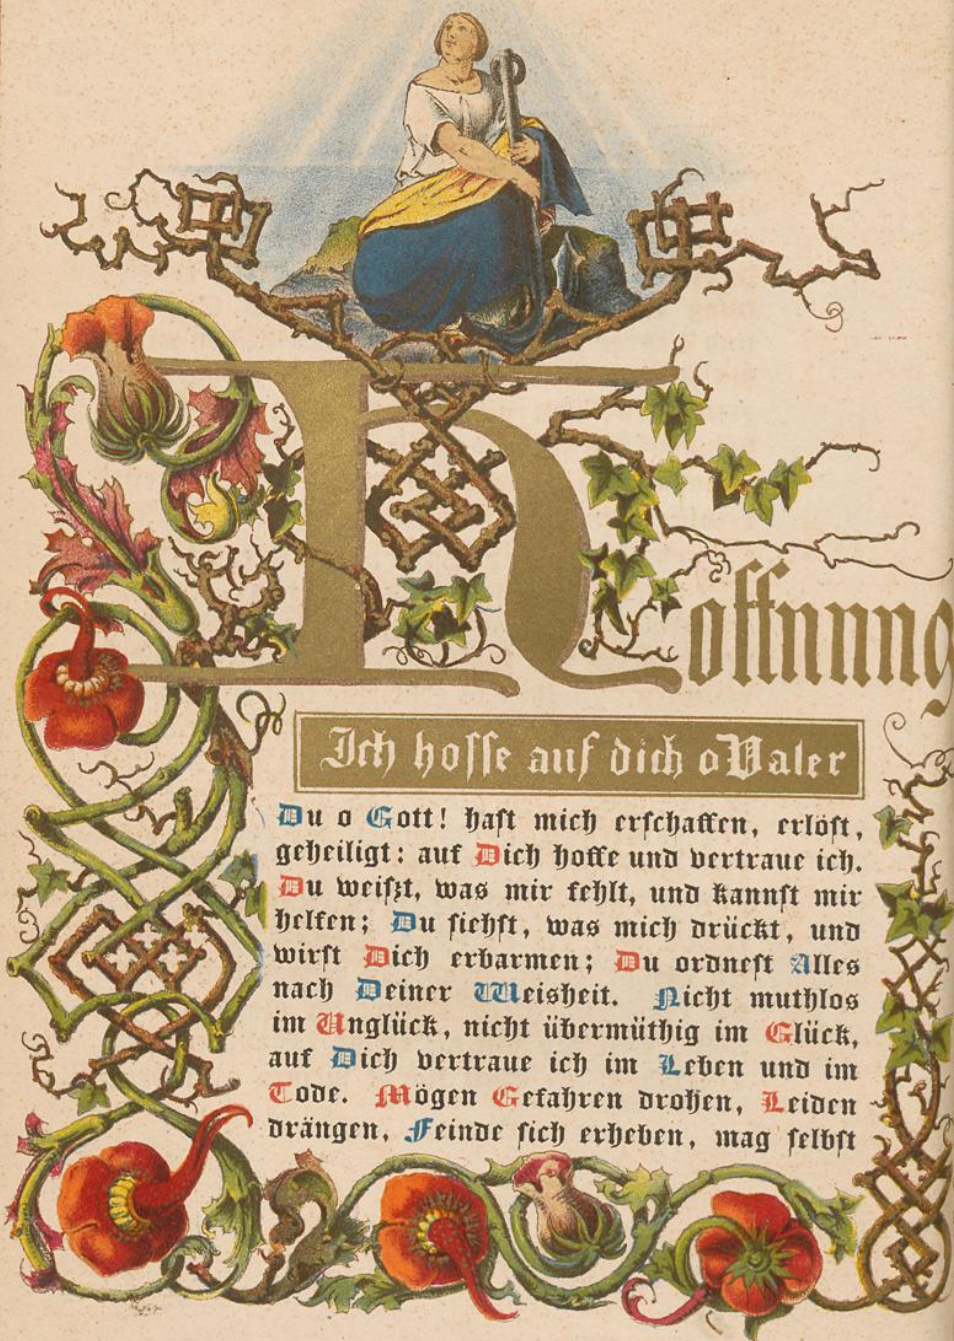 Hoffnung
Ich hoffe auf dich o Vater
Du o Gott! hast mich erschaffen, erlöst,
geheiligt: auf Dich hoffe und vertraue ich.
Du weißt, was mir fehlt, und kannst mir
helfen; Du siehst, was mich drückt, und
wirst Dich erbarmen; Du ordnest Alles
nach Deiner Weisheit. Nicht muthlos
im Unglück, nicht übermüthig im Glück,
auf Dich vertraue ich im Leben und im
Tode. Mögen Gefahren drohen, Leiden
drängen, Feinde sich erheben, mag selbst